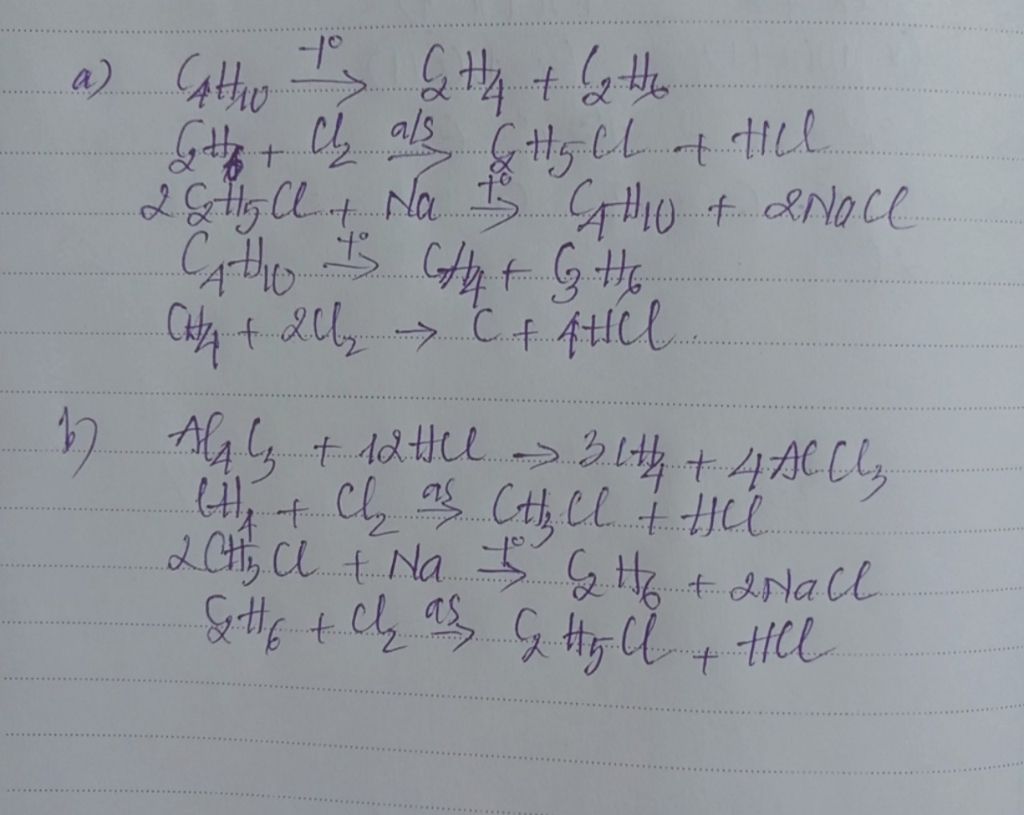 a) C₄H₁₀ →(t°) C₂H₄ + C₂H₆
C₂H₆ + Cl₂ →(a/s) C₂H₅Cl + HCl
2C₂H₅Cl + Na →(t°) C₄H₁₀ + 2NaCl
C₄H₁₀ →(t°) CH₄ + C₃H₆
CH₄ + 2Cl₂ → C + 4HCl
b) Al₄C₃ + 12HCl → 3CH₄ + 4AlCl₃
CH₄ + Cl₂ →(as) CH₃Cl + HCl
2CH₃Cl + Na →(t°) C₂H₆ + 2NaCl
C₂H₆ + Cl₂ →(as) C₂H₅Cl + HCl